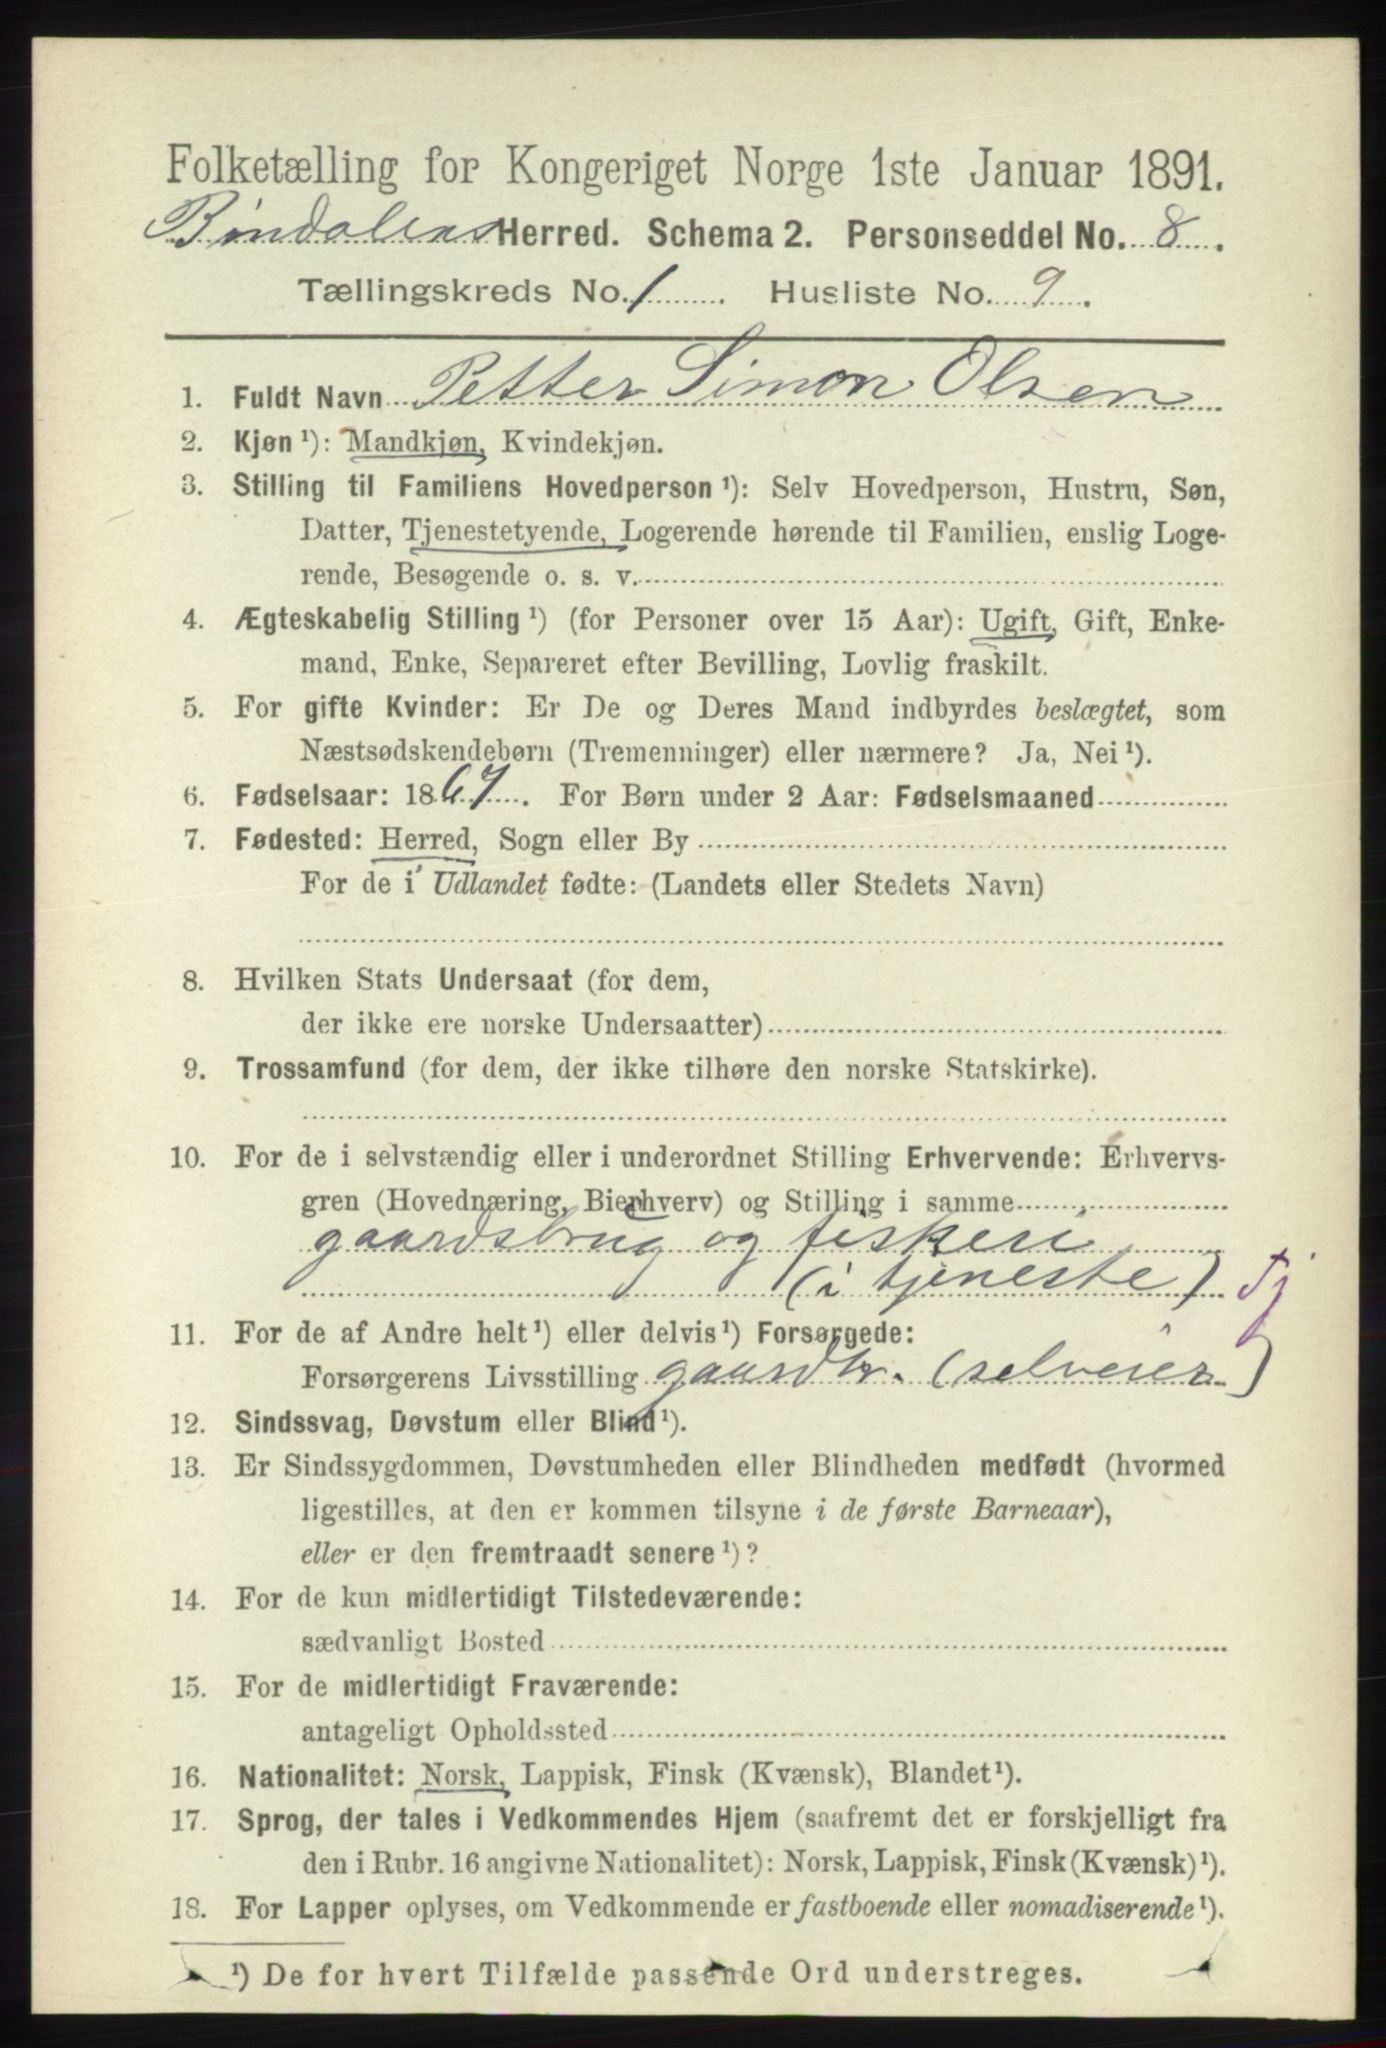 Folketælling for Kongeriget Norge 1ste Januar 1891.
Bindalens Herred. Schema 2. Personseddel No. 8.
Tællingskreds No. 1. Husliste No. 9.
1. Fuldt Navn Petter Simon Olsen
2. Kjøn ¹): Mandkjøn, Kvindekjøn.
3. Stilling til Familiens Hovedperson ¹): Selv Hovedperson, Hustru, Søn,
Datter, Tjenestetyende, Logerende hørende til Familien, enslig Loge-
rende, Besøgende o. s. v.
4. Ægteskabelig Stilling ¹) (for Personer over 15 Aar): Ugift, Gift, Enke-
mand, Enke, Separeret efter Bevilling, Lovlig fraskilt.
5. For gifte Kvinder: Er De og Deres Mand indbyrdes beslægtet, som
Næstsødskendebørn (Tremenninger) eller nærmere? Ja, Nei ¹).
6. Fødselsaar: 1867. For Børn under 2 Aar: Fødselsmaaned
7. Fødested: Herred, Sogn eller By
For de i Udlandet fødte: (Landets eller Stedets Navn)
8. Hvilken Stats Undersaat (for dem,
der ikke ere norske Undersaatter)
9. Trossamfund (for dem, der ikke tilhøre den norske Statskirke).
10. For de i selvstændig eller i underordnet Stilling Erhvervende: Erhvervs-
gren (Hovednæring, Bierhverv) og Stilling i samme
gaardsbrug og fiskeri
(i tjeneste) tj
11. For de af Andre helt ¹) eller delvis ¹) Forsørgede:
Forsørgerens Livsstilling gaardbr. (selveier)
12. Sindssvag, Døvstum eller Blind ¹).
13. Er Sindssygdommen, Døvstumheden eller Blindheden medfødt (hvormed
ligestilles, at den er kommen tilsyne i de første Barneaar),
eller er den fremtraadt senere ¹)?
14. For de kun midlertidigt Tilstedeværende:
sædvanligt Bosted
15. For de midlertidigt Fraværende:
antageligt Opholdssted
16. Nationalitet: Norsk, Lappisk, Finsk (Kvænsk), Blandet ¹).
17. Sprog, der tales i Vedkommendes Hjem (saafremt det er forskjelligt fra
den i Rubr. 16 angivne Nationalitet): Norsk, Lappisk, Finsk (Kvænsk) ¹).
18. For Lapper oplyses, om Vedkommende er fastboende eller nomadiserende ¹).
¹) De for hvert Tilfælde passende Ord understreges.